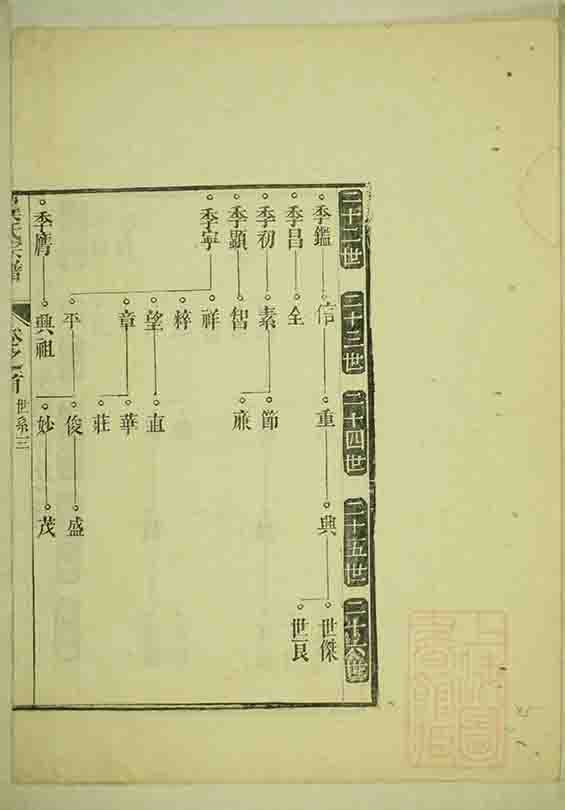 二十二世
二十三世
二十四世
二十五世
二十六世
季鑑
信
重
興
世傑
世良
季昌
全
季礽
素
節
廉
季顯
智
季寧
祥
粹
望
直
章
華
莊
平
俊
盛
妙
茂
季膺
興祖
氏宗譜
卷之首
世系三
上海圖書館藏